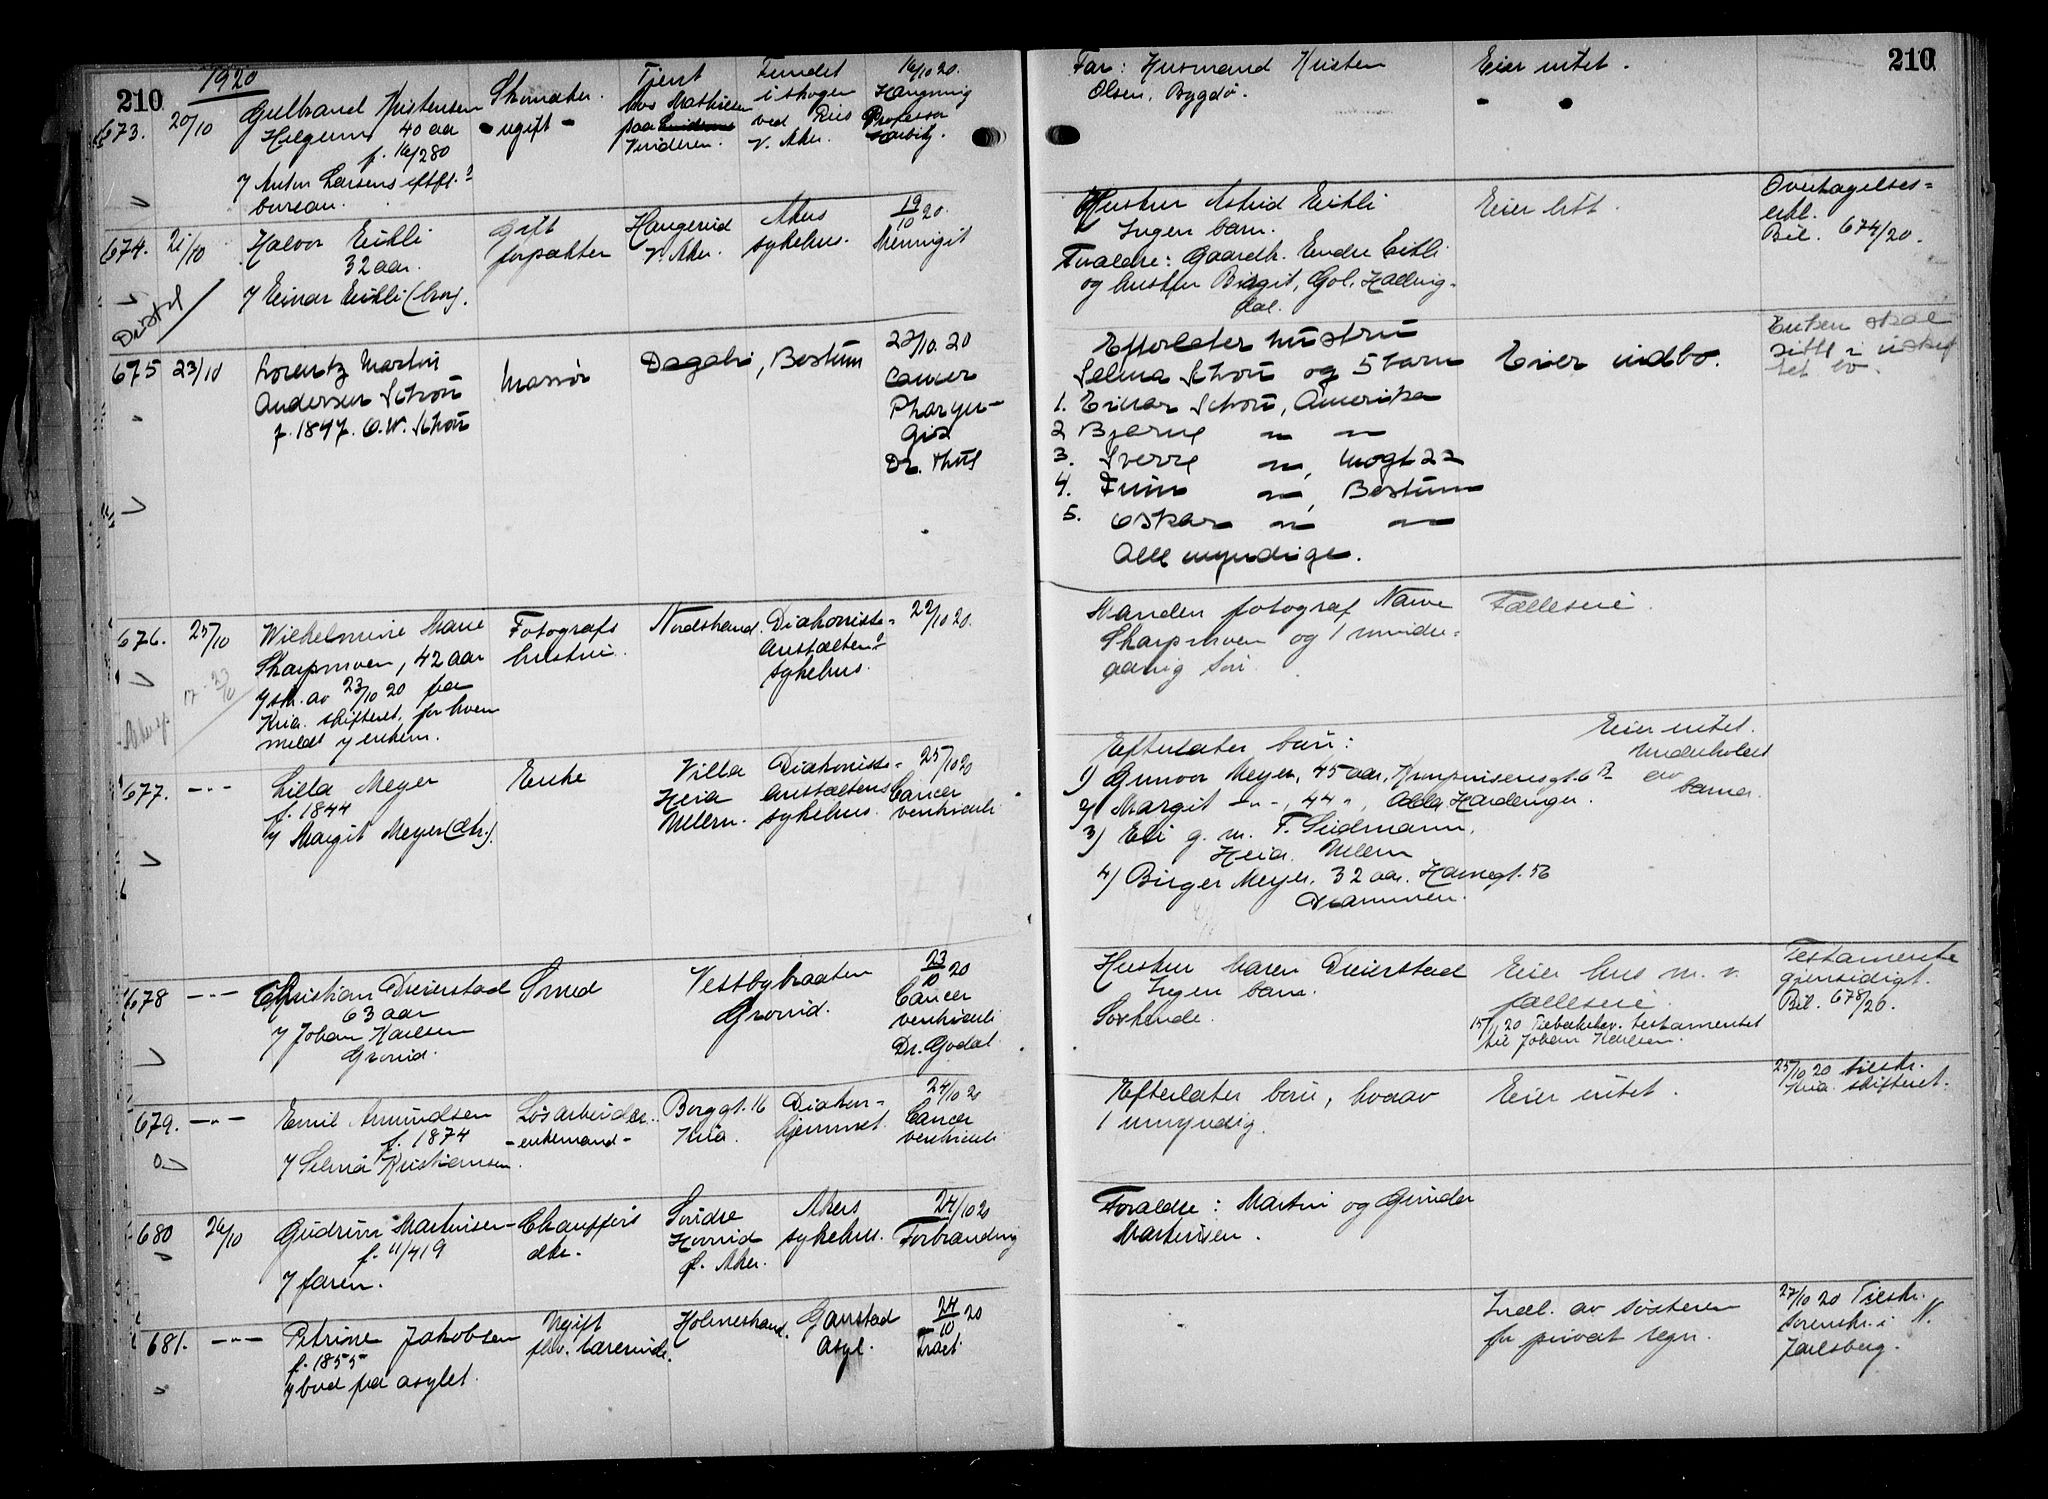 210
1920
673. 20/10
Gulbrand Kristensen
Helgerud 40 aar
f. 16/2 80
Anton Larsens eftfl.?
bureau.
Skomaker.
- ugift -
Tjent
hos Mathisen
paa
Vinderen.
Fundet
i skogen
ved Riis
V. Aker.
16/10 20.
Hængning
Professor
Harbitz.
Far: Husmand Kristen
Olsen, Bygdø.
Eier intet.
210
674. 21/10
Halvor Eikli
32 aar.
Einar Eikli (bror).
Gift
forpakter
Haugerud
V. Aker.
Akers
sykehus.
19/10 20.
Meningit
Hustru Astrid Eikli
Ingen barn.
Forældre: Gaardbr. Endre Eikli
og hustru Birgit, Gol, Hallingdal.
Eier litt.
Overtagelses=
erkl.
Bil. 674/20.
675 23/10
Lorentz Martin
Andersen Schou
f. 1847. O.W. Schou
Massør
Dagali, Bestum
22/10. 20
Cancer
Dr. Thiis
Efterlater hustru
Selma Schou og 5 barn
1. Einar Schou, Amerika
2 Bjarne " "
3. Sverre ", Mogt 22
4. Finn ", Bestum
5. Oskar " "
Alle myndige.
Eier indbo.
Enken skal
sitte i uskif
tet bo.
676. 25/10
Wilhelmine Marie
Skarpmoen, 42 aar
skr. av 23/10 20 fra
Kria. skifteret, for hvem
meldt enkem.
Fotografs
hustru.
Nordstrand.
Diakonisse=
anstaltens
sykehus.
22/10 20.
Manden fotograf Narve
Skarpmoen og 1 mindre=
aarig søn.
Fælleseie.
677. - " -
Lilla Meyer
f. 1844
Margit Meyer (dtr.).
Enke
Villa
Heia
Ullern.
Diakonisse=
anstaltens
sykehus.
25/10 20
Cancer
ventriculi
Efterlater barn:
1) Gunvor Meyer, 45 aar, Kronprinsensgt. 6 B
2) Margit - " -, 44 ", Hardanger.
3) Elli g. m. F. Seidmann,
Heia, Ullern
4) Birger Meyer, 32 aar. Havnegt. 56
Drammen.
Eier intet.
Underholdt
av
barna.
678 - " -
Christian Dreierstad
63 aar
Johan Karlsen
Grorud.
Smed
Vestbybraaten
Grorud.
23/10 20
Cancer
ventriculi
Dr. Godal.
Hustru Maren Dreierstad
Ingen barn.
Søskende.
Eier hus m. v.
fælleseie.
15/11 20 Tilbakelev. testamentet
til Johan Karlsen.
Testamente
gjensidigt.
Bil. 678/20.
679. - " -
Emil Amundsen
f. 1874
Selma Kristiansen.
Løsarbeider.
- enkemand -
Borggt. 16
Kria.
Diakon=
hjemmet.
24/10 20
Cancer
ventriculi
Efterlater barn, hvorav
1 umyndig.
Eier intet.
25/10 20 tilskr.
Kria. skifteret.
680 26/10
Gudrun Martinsen
f. 11/4 19
faren.
Chaufførs
dtr.
Søndre
Hovind
Ø. Aker.
Akers
sykehus.
24/10 20
Forbrænding
Forældre: Martin og Gunda
Martinsen.
681. - " -
Petrine Jakobsen
f. 1855
bud fra asylet.
Ugift
fhv. lærerinde.
Holmestrand.
Gaustad
Asyl.
24/10 20
Indl. av søsteren
for privat regn.
27/10 20 Tilskr.
Sorenskr. i N.
Jarlsberg.